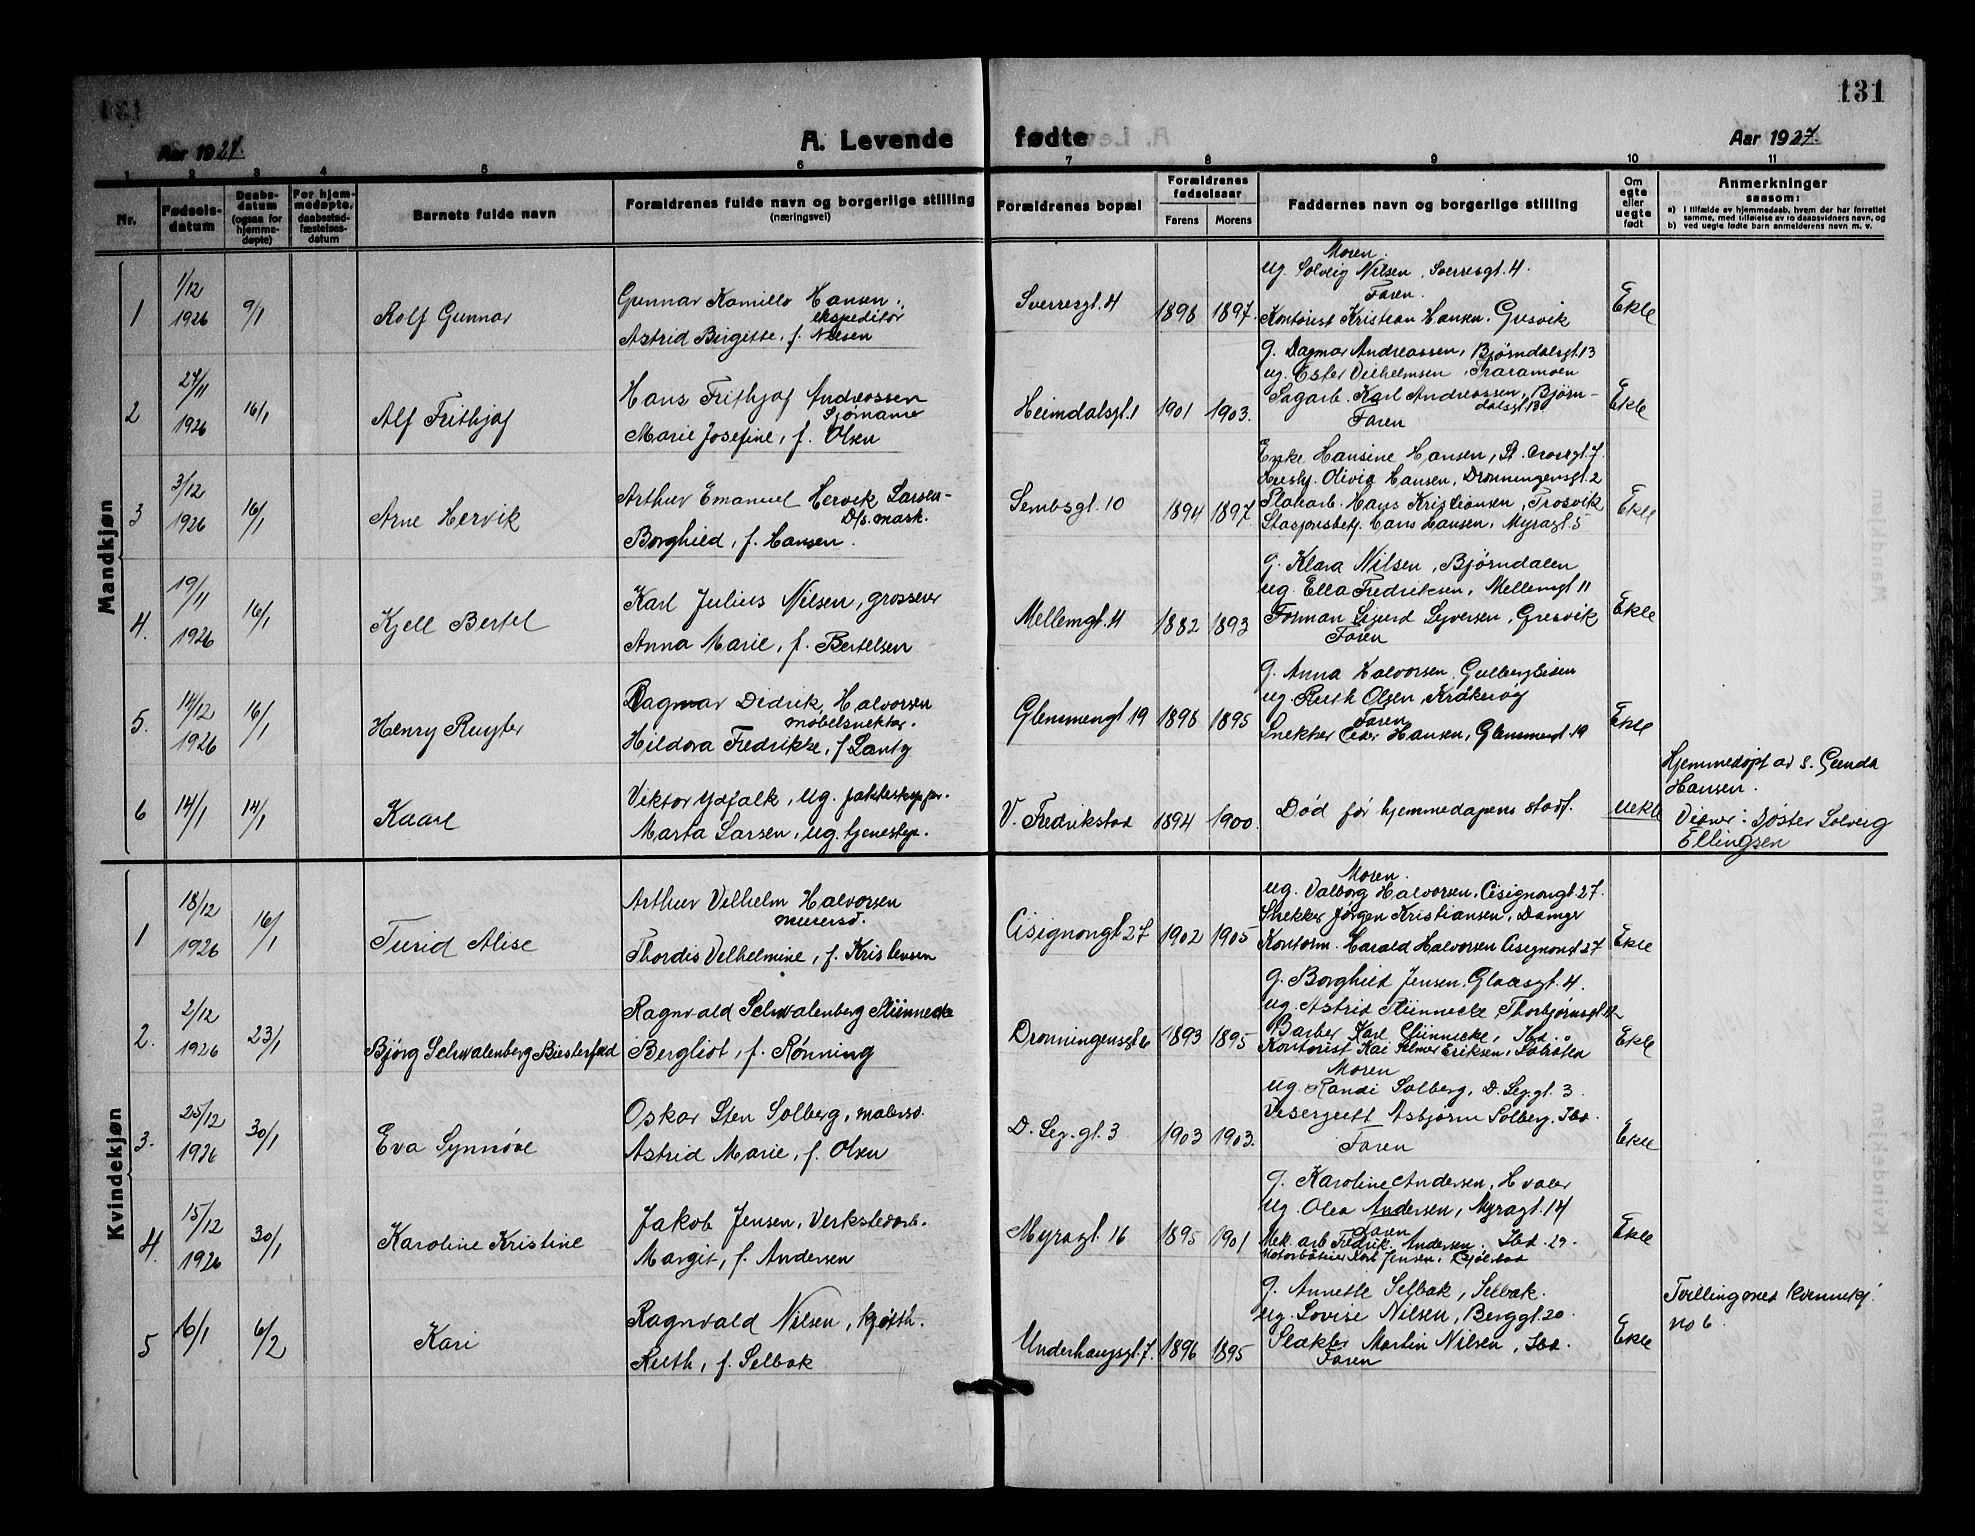 131
A. Levende fødte
Aar 1927.
Aar 1927.
1 2 3 4 5 6 7 8 9 10 11
Nr.
Fødsels-
datum
Daabs-
datum
(ogsaa for
hjemme-
døpte)
For hjem-
medøpte,
daabsstad-
fæstelses-
datum
Barnets fulde navn
Forældrenes fulde navn og borgerlige stilling
(næringsvei)
Forældrenes bopæl
Forældrenes
fødselsaar
Farens Morens
Faddernes navn og borgerlige stilling
Om
egte
eller
uegte
født
Anmerkninger
saasom:
a) i tilfælde av hjemmedaab, hvem der har forrettet
samme, med tilføielse av to daabsvidners navn, og
b) ved uegte fødte barn anmelderens navn m. v.
Mandkjøn
1
1/12
1926
9/1
Rolf Gunnar
Gunnar Kamillo Hansen,
ekspeditør
Astrid Birgitte, f. Nilsen
Sverresgt. 4
1898 1897.
Moren.
ug. Solveig Nilsen, Sverresgt. 4.
Faren.
Kontorist Kristian Hansen, Gresvik
Ekte
2
27/11
1926
16/1
Alf Frithjof
Hans Frithjof Andreassen
Sjømann
Marie Josefine, f. Olsen
Heimdalsgt. 1
1901 1903.
g. Dagmar Andreassen, Bjørndalsgt. 13
ug. Ester Vilhelmsen, Traramoen
Sagarb. Karl Andreassen, Bjørn-
dalsgt. 13
Faren
Ekte
3
3/12
1926
16/1
Arne Hervik
Arthur Emanuel Hervik Larsen-
D/s. mask.
Borghild, f. Hansen.
Sembsgt. 10
1894 1897.
Enke Hansine Hansen, St. Crossgt. 7
Olivia Hansen, Dronningensgt. 2
Plaharb. Hans Kristiansen, Trosvik
Stasjonsbetj. Hans Hansen, Myragt. 5
Ekte
4.
19/11
1926
16/1
Kjell Bertel
Karl Julius Nilsen, grosserer
Anna Marie, f. Bertelsen
Mellemgt. 11
1882 1893
g. Klara Nilsen, Bjørndalen
ug. Ella Fredriksen, Mellemgt 11
Forman Sigurd Syversen, Gresvik
Faren
Ekte
5.
14/12
1926
16/1
Henry Ruyter
Ragnar Didrik Halvorsen
møbelsnekker.
Hildora Fredrikke, f. Lantz
Glemmengt 19
1898 1895
g. Anna Halvorsen, Gulbergbeien
ug. Ruth Olsen, Kråkerøy
Faren
Snekker Hansen, Glemmengt. 19
Ekte
6
14/1
14/1
Kaare
Viktor Ydfalk, ug. jakteskipper.
Marta Larsen, ug. tjenestep.
V. Fredrikstad
1894 1900.
Død før hjemmedåpens stadf.
uekte
Hjemmedøpt av s. Gunda
Hansen.
Vidner: Søster Solveig
Ellingsen
Kvindekjøn
1
18/12
1926
16/1
Turid Alise
Arthur Vilhelm Halvorsen
murersv.
Thordis Vilhelmine, f. Kristensen
Cisignongt 27
1902 1905
Moren.
ug. Valborg Halvorsen, Cisignongt 27.
Snekker Jørgen Kristiansen, Damyr
Kontorm. Harald Halvorsen Cisignongt 27
Ekte
2.
2/12
1926
23/1
Bjørg Schwalenberg Biesterfeld
Ragnvald Schwalenberg Stünnecke
Bergliot, f. Rønning
Dronningensgt 6
1893 1895
g. Borghild Jensen, Glaasgt. 4.
ug. Astrid Stünnecke, Thorbjørnsgt 12
Barber Karl Stünnecke, Ibd.
Kontorist Kai Almer Eriksen,
Ekte
3.
25/12
1926
30/1
Eva Synnøve
Oskar Sten Solberg, malersv.
Astrid Marie, f. Olsen
D. Seg. gt. 3
1903 1903.
Moren
ug. Randi Solberg, D. Seg. gt. 3
Visergutt Asbjørn Solberg, Ibd.
Faren
Ekte
4.
15/12
1926
30/1
Karoline Kristine
Jakob Jensen, Verkstedarb.
Margit, f. Andersen
Myragt. 16
1895 1901
g. Karoline Andersen, Hvaler
ug. Olea Andersen, Myragt. 14
Faren
Mek. arb. Fredrik Andersen, Ibd. 29.
Karl Jensen,
Ekte
5
6/1
6/2
Kari
Ragnvald Nilsen, kjøtth.
Ruth, f. Selbak
Underhaugsgt. 7.
1896 1895
g. Annette Selbak, Selbak.
ug. Lovise Nilsen, Berggt. 20
Slakter Martin Nilsen, Ibd.
Faren
Ekte
Tvilling med kvinnekj.
no 6.